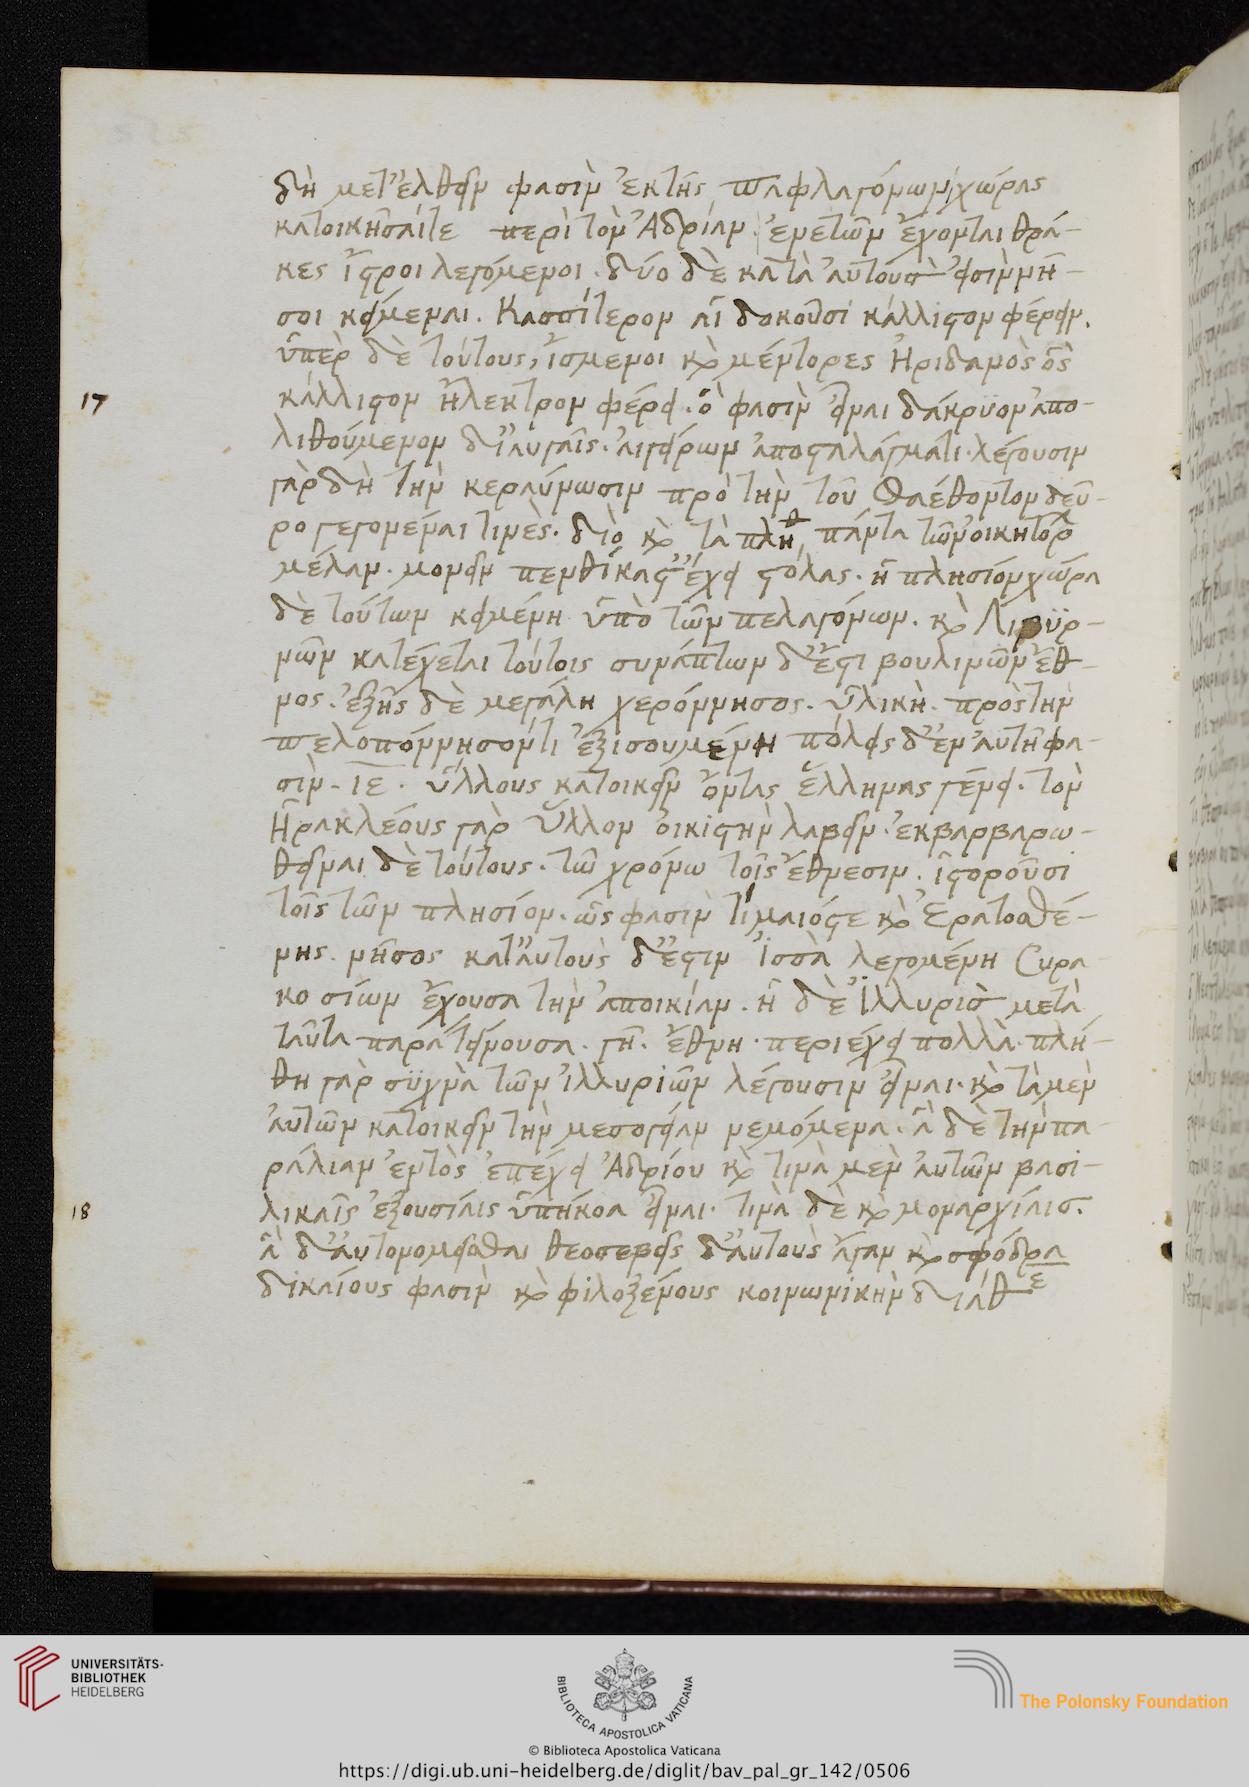 δὴ μετ' ἐλθεῖν φασὶν ἐκ τῆς παφλαγόνων χώρας
κατοικῆσαί τε περὶ τὸν Ἀδρίαν. ἐνετῶν ἔχονται θρᾷ-
κες ἴστροι λεγόμενοι. δύο δὲ κατὰ αὐτούς εἰσὶν νῆ-
σοι κείμεναι. Κασσίτερον αἳ δοκοῦσι κάλλιστον φέρειν.
ὑπὲρ δὲ τούτους, ἴσμενοι καὶ μέντορες Ἠριδανὸς ὃς
17 κάλλιστον ἤλεκτρον φέρει. ὅ φασιν εἶναι δάκρυον ἀπο-
λιθούμενον διαυγαῖς. αἰγείρων ἀποσταλάγματι. λέγουσιν
γὰρ δὴ τὴν κεραύνωσιν πρὸ τὴν τοῦ Φαέθοντον δεῦ-
ρο γεγονεμέναι τινὲς. διὸ καὶ τὰ πλήθ πάντα τῶν οἰκητόρ
μέλαν. μονεῖν πενθικάς τ' ἔχει στολάς. ἡ πλησίον χώρα
δὲ τούτων κειμένη ὑπὸ τῶν πελαγόνων. καὶ Λιβυρ-
νῶν κατέχεται τούτοις συνάπτων δ' ἔστι βουλινῶν ἔθ-
νος. ἑξῆς δὲ μεγάλη χερόννησος. ὑλικὴ. πρὸς τὴν
πελοπόννησον τι ἐξισουμένη πόλεις δ' ἐν αὐτῇ φα-
σὶν. ιε. ὕλλους κατοικεῖν ὄντας ἕλληνας γένει. τὸν
Ἡρακλέους γὰρ Ὕλλον οἰκιστὴν λαβεῖν. ἐκβαρβαρω-
θεῖναι δὲ τούτους. τῷ χρόνω τοῖς ἔθνεσιν. ἱστοροῦσι
τοῖς τῶν πλησίον. ὥς φασιν τίμαιός τε καὶ Ἐρατοσθέ-
νης. νῆσος κατ' αὐτοὺς δ' ἔστιν Ἴσσα λεγομένη Συρα-
κοσίων ἔχουσα τὴν ἀποικίαν. ἡ δὲ Ἰλλυρὶς μετὰ
ταῦτα παρατείνουσα. γῆ. ἔθνη. περιέχει πολλὰ. πλή-
θη γὰρ συχνὰ τῶν ἰλλυριῶν λέγουσιν εἶναι. καὶ τὰ μὲν
αὐτῶν κατοικεῖν τὴν μεσογείαν νεμόμενα. ἃ δὲ τὴν πα-
ράλιαν ἐντὸς ἐπέχει Ἀδρίου καὶ τινὰ μὲν αὐτῶν βασι-
18 λικαῖς ἐξουσίαις ὑπήκοα εἶναι. τινὰ δὲ καὶ μοναρχίαις.
ἃ δ' αὐτονομεῖσθαι θεοσεβεῖς δ' αὐτοὺς ἄγαν καὶ σφόδρα
δικαίους φασὶν καὶ φιλοξένους κοινωνικὴν διάθε
UNIVERSITÄTS-
BIBLIOTHEK
HEIDELBERG
BIBLIOTECA APOSTOLICA VATICANA
The Polonsky Foundation
© Biblioteca Apostolica Vaticana
https://digi.ub.uni-heidelberg.de/diglit/bav_pal_gr_142/0506